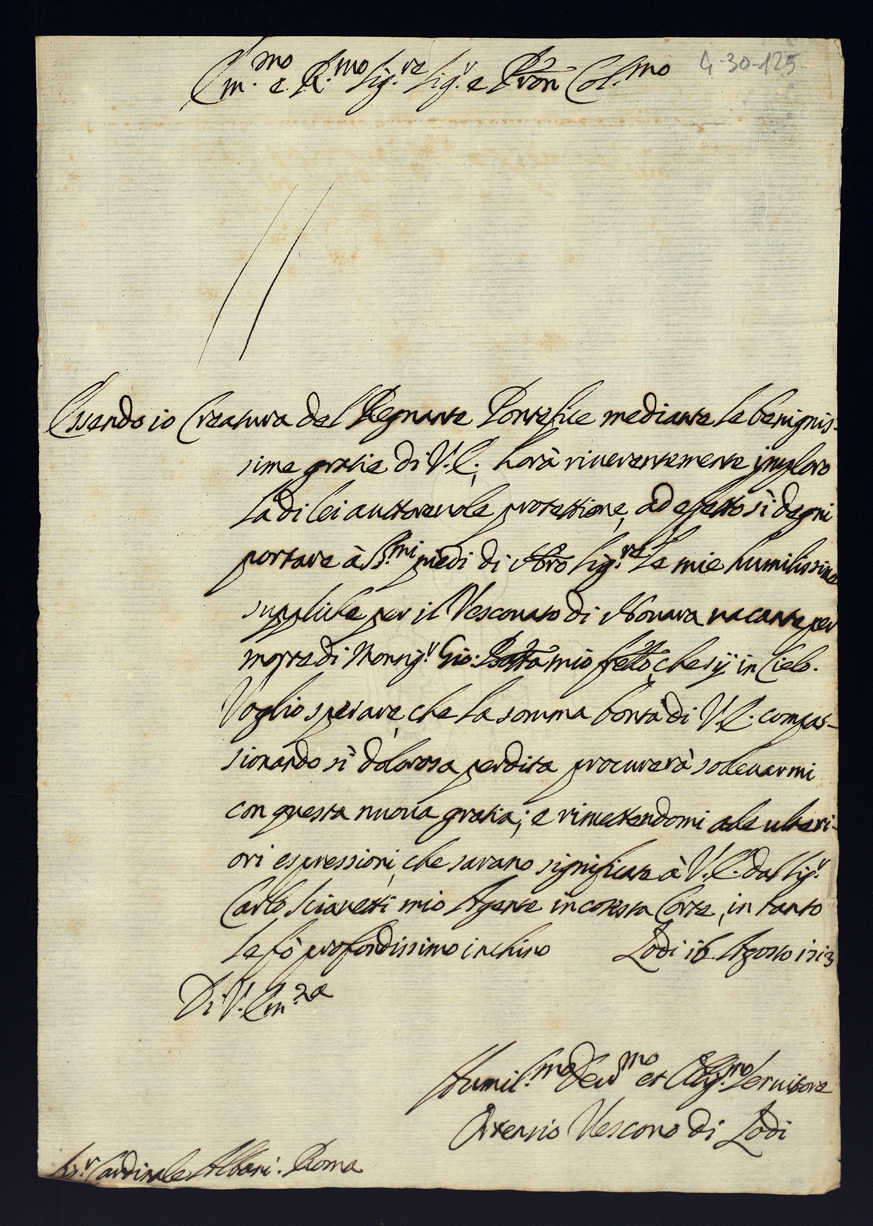 Em.mo e R.mo Sig.re Sig.r e Pron Col.mo
4-30-125
Essendo io Creatura del Regnante Pontefice mediante le benignis-
sime gratie di V.E., horà riuerentemente imploro
la di lei auttoreuole protettione, ad effetto si degni
portare à SS.mi piedi di Nro Sig.re le mie humilissime
suppliche per il Vescouato di Nouara uacante per
morte di Monsig.r Gio: Batta mio frello, che sij in Cielo.
Voglio sperare, che la somma bontà di V.E. compas-
sionando sì dolorosa perdita procurerà solleuarmi
con questa nuoua gratia; e rimettendomi alle ulteri-
ori espressioni, che sarano significate à V.E. dal Sig.r
Carlo Sciauetti mio Agente in cotesta Corte, in tanto
le fò profondissimo inchino Lodi 16 Agosto 1713
Di V. Em.za
Humil.mo Deu.mo et Oblig.mo Seruitore
Ortensio Vescouo di Lodi
Sig.r Cardinale Albani. Roma